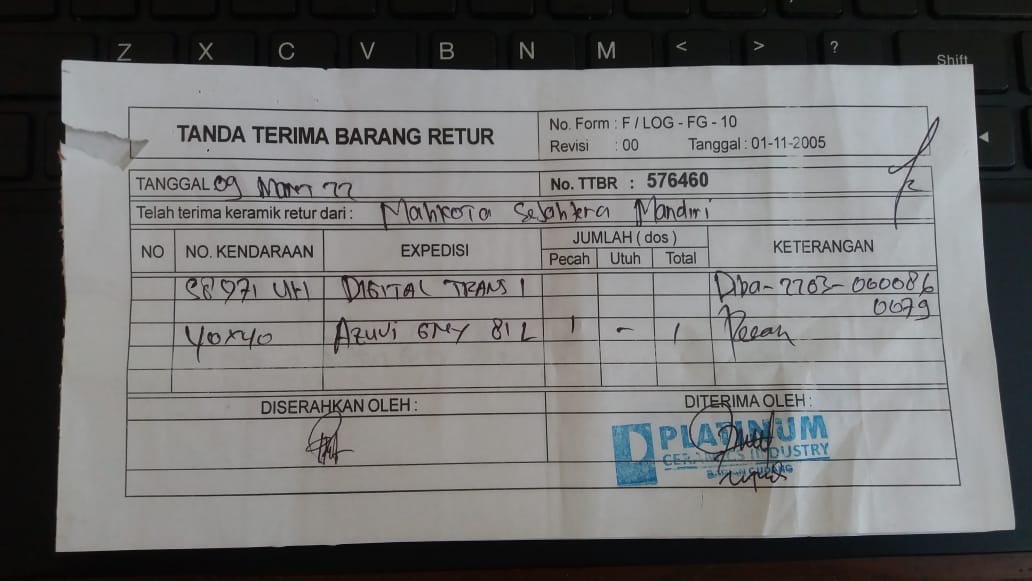 Z X C V B N M < > ?
Shift
TANDA TERIMA BARANG RETUR
No. Form : F / LOG - FG - 10
Revisi : 00 Tanggal : 01-11-2005
TANGGAL 09 Maret 22
No. TTBR : 576460
Telah terima keramik retur dari : Mahkota Sejahtera Mandiri
NO NO. KENDARAAN EXPEDISI JUMLAH ( dos ) KETERANGAN
Pecah Utuh Total
UH DIGITAL TRANS I
0679
40x40 Azuvi GNY 81 L 1 - 1 Pecah
DISERAHKAN OLEH :
DITERIMA OLEH :
PLATINUM
CERAMICS INDUSTRY